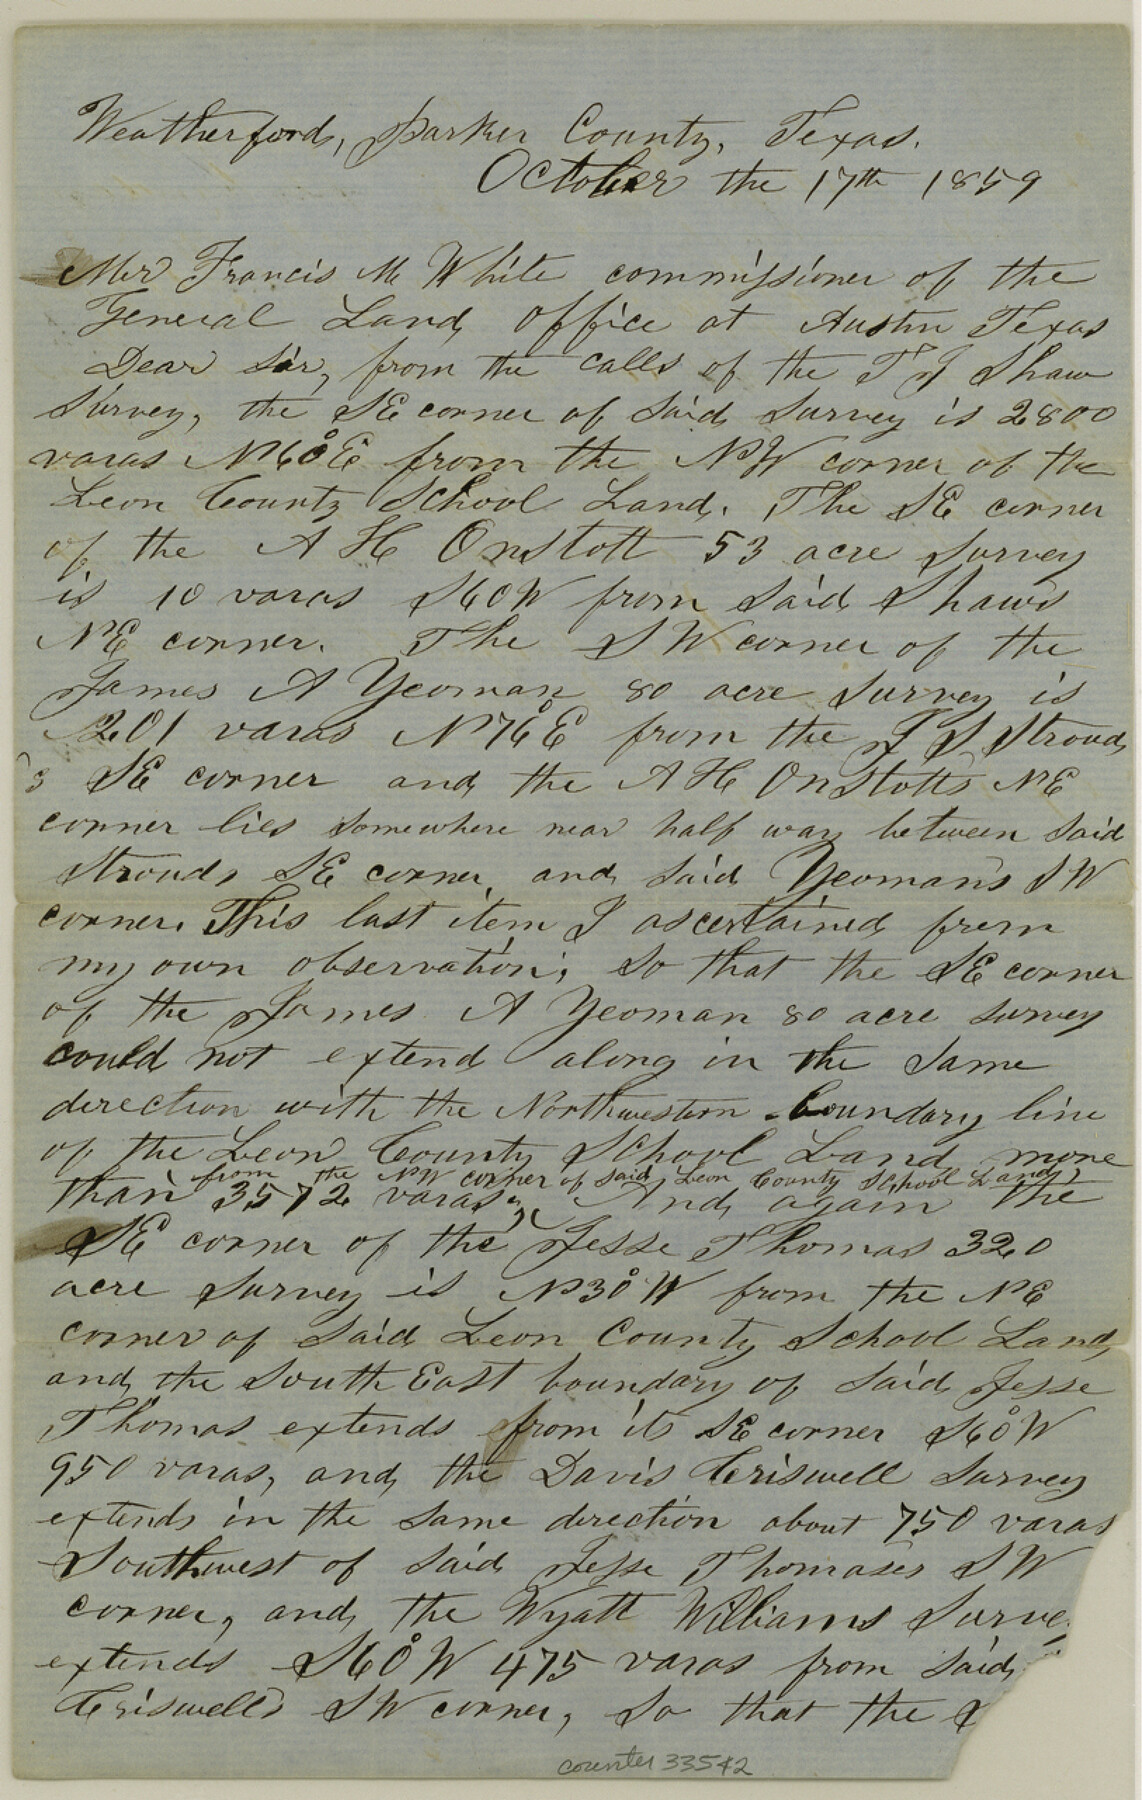 Weatherford, Parker County, Texas.
October the 17th 1859
Mr Francis M White commissioner of the
General Land Office at Austin Texas
Dear Sir, from the calls of the T J Shaw
Survey, the SE corner of said survey is 2800
varas N60°E from the NW corner of the
Leon County School Land. The SE corner
of the A H Onstott 53 acre survey
is 10 varas S60W from said Shaws
NE corner. The SW corner of the
James A Yeoman 80 acre survey is
201 varas N76°E from the J S Stroud
's SE corner and the A H Onstotts NE
corner lies somewhere near half way between said
Strouds SE corner, and said Yeoman's SW
corner. This last item I ascertained from
my own observation; so that the SE corner
of the James A Yeoman 80 acre survey
could not extend along in the same
direction with the Northwestern boundary line
of the Leon County School Land more
from the NW corner of said Leon County School Land,
than 3572 varas; And again the
SE corner of the Jesse Thomas 320
acre survey is N30°W from the NE
corner of said Leon County School Land,
and the South East boundary of said Jesse
Thomas extends from its SE corner S60°W
950 varas, and the Davis Criswell survey
extends in the same direction about 750 varas
Southwest of said Jesse Thomases SW
corner, and the Wyatt Williams Surve
extends S60°W 475 varas from said
Criswell's SW corner, so that the S
counter 33542